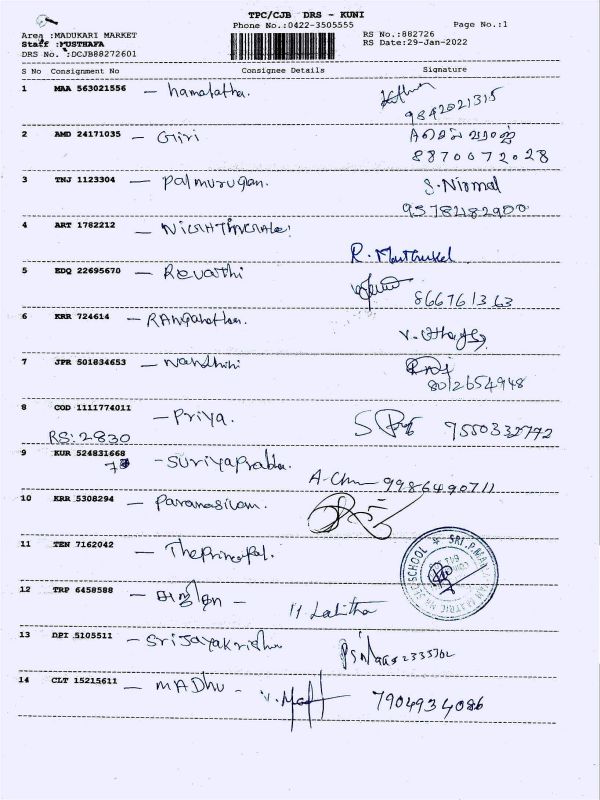 TPC/CJB DRS - KUNI
Phone No.:0422-3505555 Page No.:1
Area :MADUKARI MARKET RS No.:882726
Staff :MUSTHAFA RS Date:29-Jan-2022
DRS No. :DCJB88272601
S No Consignment No Consignee Details Signature
1 MAA 563021556 - hamalatha.
9842021315
2 AMD 24171035 - Giri
8870072028
3 TNJ 1123304 - Palmurugan. S. Nirmal
9578482900
4 ART 1782212
R. Muthuvel
5 EDQ 22695670 - Revathi
866761363
6 KRR 724614
7 JPR 501834653 - Nandhini
8012654948
8 COD 1111774011 - Priya. 7550332792
RS: 2830
9 KUR 524831668 - Suriyaprabha.
9986490711
10 KRR 5308294 - Paramasivam.
11 TEN 7162042 - The Principal.
12 TRP 6458588 - H Lalitha
13 DPI 5105511 - Srijayakrishna
14 CLT 15215611 - MADHU - 7904934086